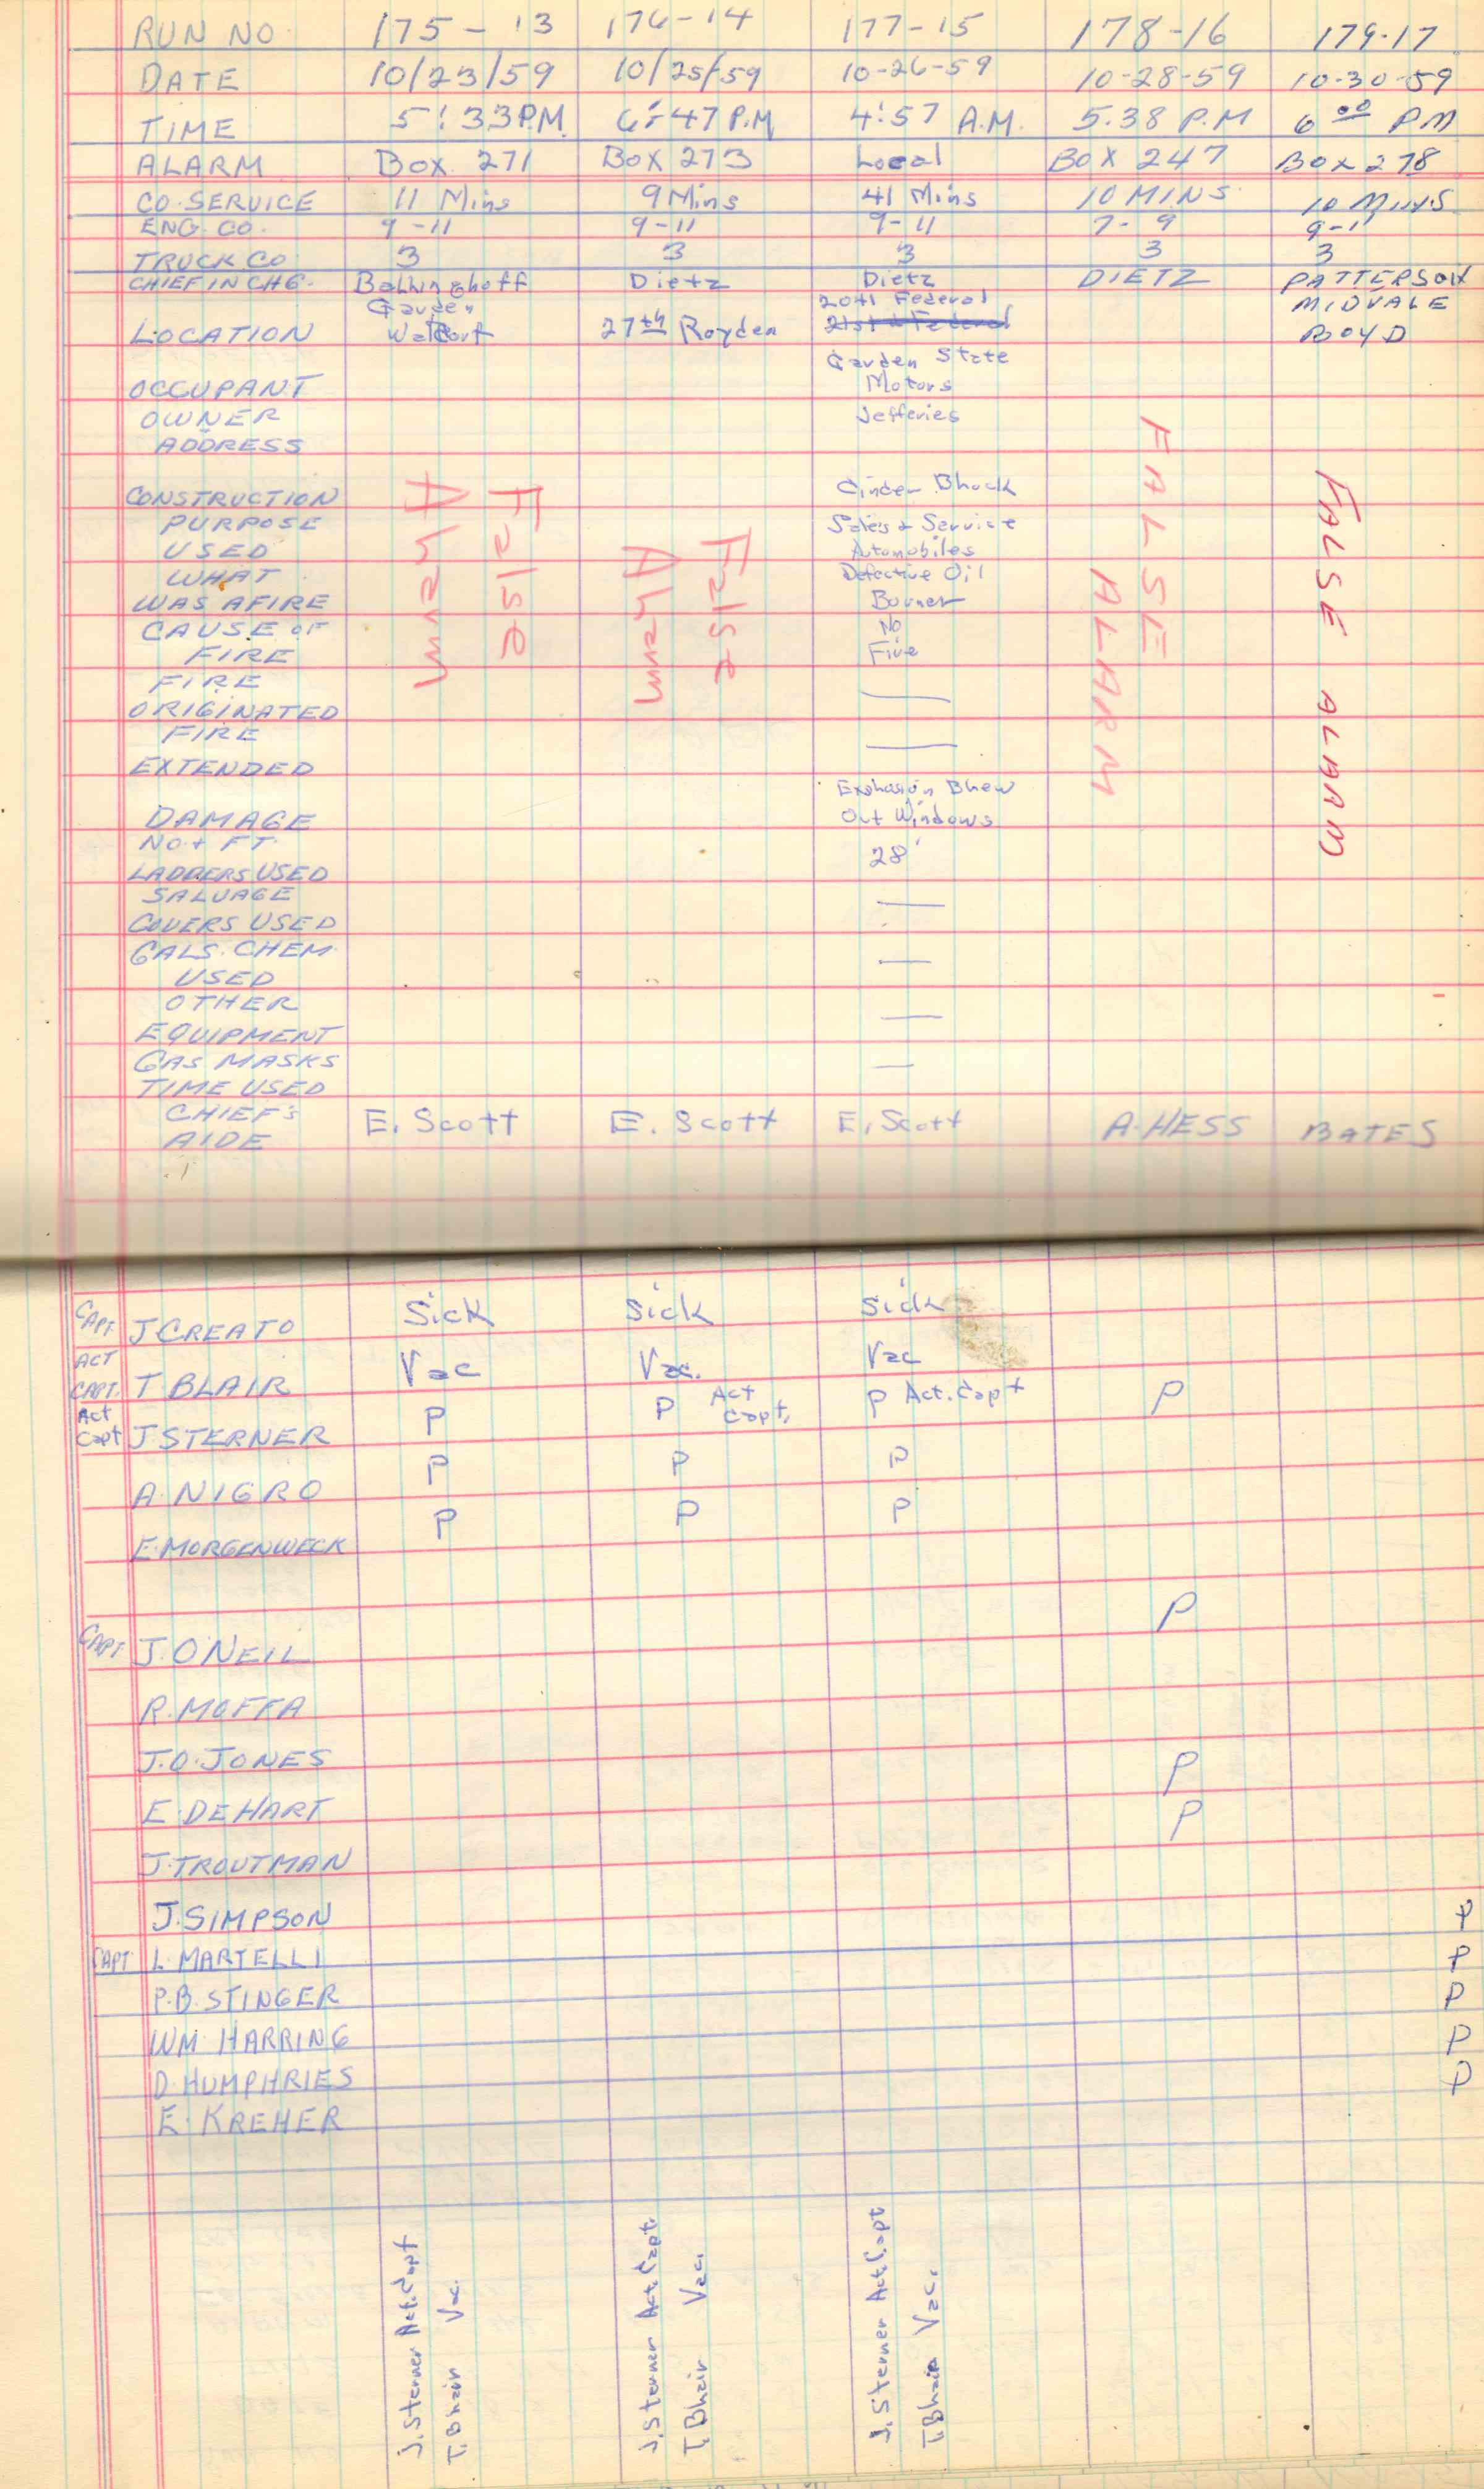 RUN NO. 175 - 13 176-14 177-15 178-16 179-17
DATE 10/23/59 10/25/59 10-26-59 10-28-59 10-30-59
TIME 5:33 P.M. 6:47 P.M 4:57 A.M. 5.38 P.M 6 00 PM
ALARM Box 271 Box 273 Local BOX 247 Box 278
CO. SERVICE 11 Mins 9 Mins 41 Mins 10 MINS. 10 MINS
ENG. CO. 9-11 9-11 9-11 7-9 9-11
TRUCK CO 3 3 3 3 3
CHIEF IN CHG. Dietz Dietz DIETZ PATTERSON
2041 Federal MIDVALE
LOCATION 27th Royden 21st & Federal BOYD
Garden State
OCCUPANT Motors
OWNER Jefferies
ADDRESS
CONSTRUCTION Cinder Block
PURPOSE Sales & Service
USED Automobiles
WHAT Defective Oil
WAS AFIRE Burner
CAUSE OF No
FIRE Fire
FIRE
ORIGINATED
FIRE
EXTENDED
Explosion Blew
DAMAGE Out Windows
NO + FT. 28'
LADDERS USED
SALVAGE
COVERS USED
GALS. CHEM.
USED
OTHER
EQUIPMENT
GAS MASKS
TIME USED
CHIEF'S E. Scott E. Scott E. Scott A. HESS BATES
AIDE
False
Alarm
False
Alarm
FALSE
ALARM
FALSE ALARM
CAPT J CREATO Sick Sick Sick
ACT
CAPT. T BLAIR Vac Vac. Vac
Act
Capt J STERNER P P Act Capt. P Act. Capt P
A. NIGRO P P P
E. MORGENWECK P P P
CAPT J. ONEIL P
R. MOFFA
J.O. JONES P
E. DEHART P
J. TROUTMAN
J. SIMPSON P
CAPT. L. MARTELLI P
P.B. STINGER P
WM. HARRING P
D. HUMPHRIES P
E. KREHER
J. Sterner Act. Capt
T. Blair Vac.
J. Sterner Act. Capt.
T. Blair Vac.
J. Sterner Act. Capt
T. Blair Vac.